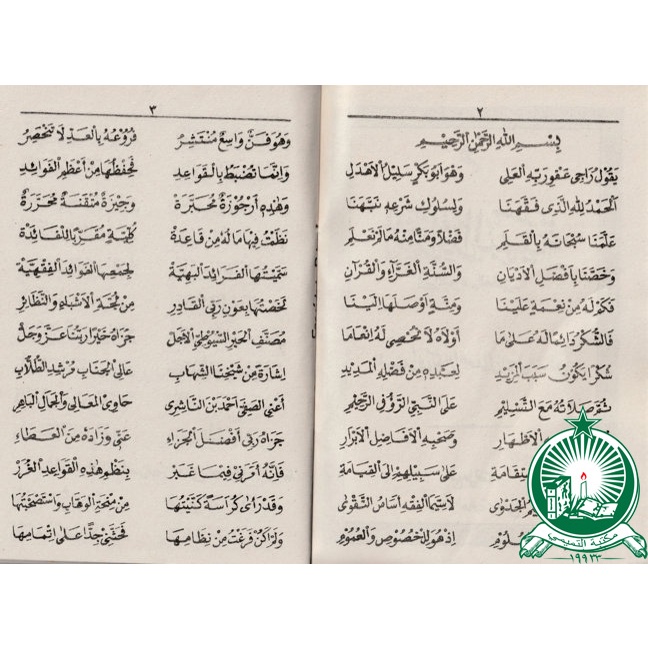 ٢
بِسْمِ اللهِ الرَّحْمٰنِ الرَّحِيْمِ
يَقُوْلُ رَاجِى عَفْوِ رَبِّهِ الْعَلِى وَهُوَ أَبُوْبَكْرٍ سَلِيْلُ الْاَهْدَلِ
اَلْحَمْدُ لِلّٰهِ الَّذِى فَقَّهَنَا وَلِسُلُوْكِ شَرْعِهِ نَبَّهَنَا
عَلَّمَنَا سُبْحَانَهُ بِالْقَلَمِ فَضْلًا وَمَنًّا مِنْهُ مَا لَمْ نَعْلَمِ
وَخَصَّنَا بِأَفْضَلِ الْاَدْيَانِ وَالسُّنَّةِ الْغَرَّاءِ وَالْقُرْآنِ
فَكَمْ لَهُ مِنْ نِعْمَةٍ عَلَيْنَا وَمِنَّةٍ أَوْصَلَهَا اِلَيْنَا
فَالشُّكْرُ دَائِمًا لَهُ عَلَى مَا أَوْلَاهُ لَا نُحْصِى لَهُ اِنْعَامَا
شُكْرًا يَكُوْنُ سَبَبَ الْمَزِيْدِ لِعَبْدِهِ مِنْ فَضْلِهِ الْمَدِيْدِ
ثُمَّ صَلَاتُهُ مَعَ التَّسْلِيْمِ عَلَى النَّبِيِّ الرَّؤُفِ الرَّحِيْمِ
الْاَطْهَارِ وَصَحْبِهِ الْاَفَاضِلِ الْاَبْرَارِ
عَلَى سَبِيْلِهِمْ اِلَى الْقِيَامَةِ
الْجَدْوَى لَاسِيَّمَا الْفِقْهِ أَسَاسُ التَّقْوَى
اِذْ هُوَ لِلْخُصُوْصِ وَالْعُمُوْمِ
٣
وَهُوَ فَنٌّ وَاسِعٌ مُنْتَشِرُ فُرُوْعُهُ بِالْعَدِّ لَا تَنْحَصِرُ
وَاِنَّمَا تُضْبَطُ بِالْقَوَاعِدِ فَحِفْظُهَا مِنْ أَعْظَمِ الْفَوَائِدِ
وَهٰذِهِ أُرْجُوْزَةٌ مُحَبَّرَةْ وَجِيْزَةٌ مُتْقَنَةٌ مُحَرَّرَةْ
نَظَمْتُ فِيْهَا مَا لَهُ مِنْ قَاعِدَةْ كُلِّيَّةٍ مُقَرِّبًا لِلْفَائِدَةْ
سَمَّيْتُهَا الْفَرَائِدَ الْبَهِيَّةْ لِجَمْعِهَا الْفَوَائِدَ الْفِقْهِيَّةْ
لَخَّصْتُهَا بِعَوْنِ رَبِّى الْقَادِرِ مِنْ لُجَّةِ الْاَشْبَاهِ وَالنَّظَائِرِ
مُصَنَّفِ الْحَبْرِ السُّيُوْطِيِّ الْاَجَلّْ جَزَاهُ خَيْرًا رَبُّنَا عَزَّ وَجَلّْ
اِشَارَةً مِنْ شَيْخِنَا الشِّهَابِ عَالِى الْجَنَابِ مُرْشِدِ الطُّلَّابِ
أَعْنِى الصَّفِيَّ أَحْمَدَ بْنَ النَّاشِرِى حَاوِى الْمَعَالِى وَالْجَمَالِ الْبَاهِرِ
جَزَاهُ رَبِّى أَفْضَلَ الْجَزَاءِ عَنِّى وَزَادَهُ مِنَ الْعَطَاءِ
فَاِنَّهُ أَمَرَنِى فِيْمَا غَبَرْ بِنَظْمِ هٰذِهِ الْقَوَاعِدِ الْغُرَرْ
وَقَدْ رَأَى كُرَّاسَةً كَتَبْتُهَا مِنْ مِنْحَةِ الْوَهَّابِ وَاسْتَصْحَبْتُهَا
وَلَمْ أَكُنْ فَرَغْتُ مِنْ نِظَامِهَا فَحَثَّنِى جِدًّا عَلَى اِتْمَامِهَا